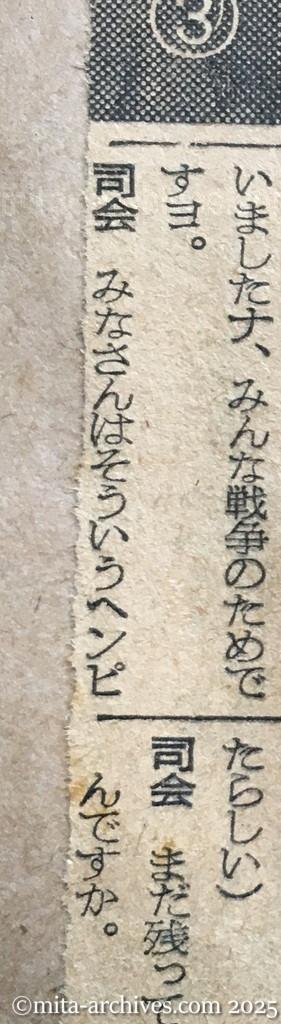 ③
いましたナ、みんな戦争のためで
すヨ。
司会　みなさんはそういうヘンピ
たらしい）
司会　まだ残って
んですか。
©mita-archives.com 2025